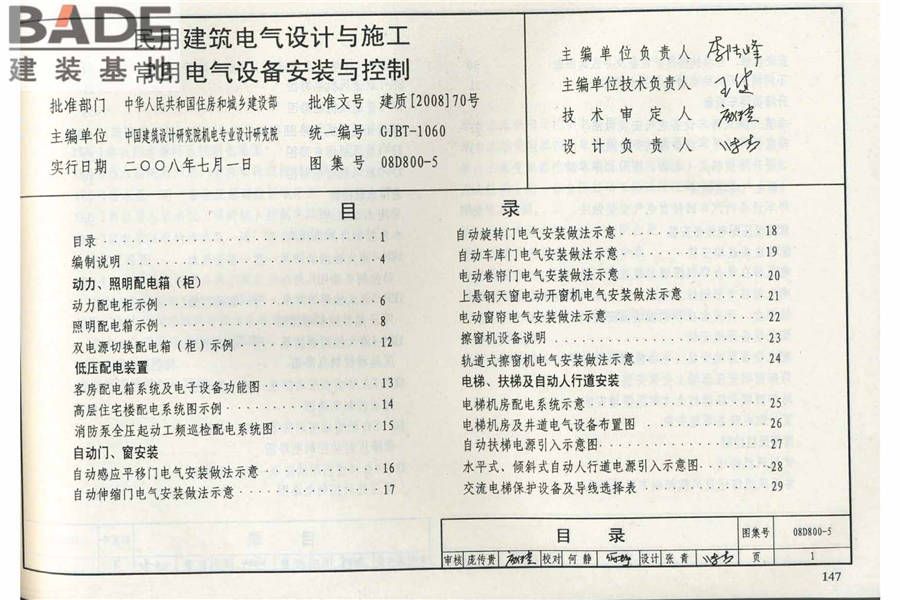 BADE
建装基地
民用建筑电气设计与施工
用电气设备安装与控制
批准部门 中华人民共和国住房和城乡建设部 批准文号 建质[2008]70号
主编单位 中国建筑设计研究院机电专业设计研究院 统一编号 GJBT-1060
实行日期 二〇〇八年七月一日 图集号 08D800-5
主编单位负责人
主编单位技术负责人
技术审定人
设计负责人
目录
目录 1
编制说明 4
动力、照明配电箱(柜)
动力配电柜示例 6
照明配电箱示例 8
双电源切换配电箱(柜)示例 12
低压配电装置
客房配电箱系统及电子设备功能图 13
高层住宅楼配电系统图示例 14
消防泵全压起动工频巡检配电系统图 15
自动门、窗安装
自动感应平移门电气安装做法示意 16
自动伸缩门电气安装做法示意 17
自动旋转门电气安装做法示意 18
自动车库门电气安装做法示意 19
电动卷帘门电气安装做法示意 20
上悬钢天窗电动开窗机电气安装做法示意 21
电动窗帘电气安装做法示意 22
擦窗机设备说明 23
轨道式擦窗机电气安装做法示意 24
电梯、扶梯及自动人行道安装
电梯机房配电系统示意 25
电梯机房及井道电气设备布置图 26
自动扶梯电源引入示意图 27
水平式、倾斜式自动人行道电源引入示意图 28
交流电梯保护设备及导线选择表 29
目录 图集号 08D800-5
审核 庞传贵 校对 何静 设计 张青 页 1
147